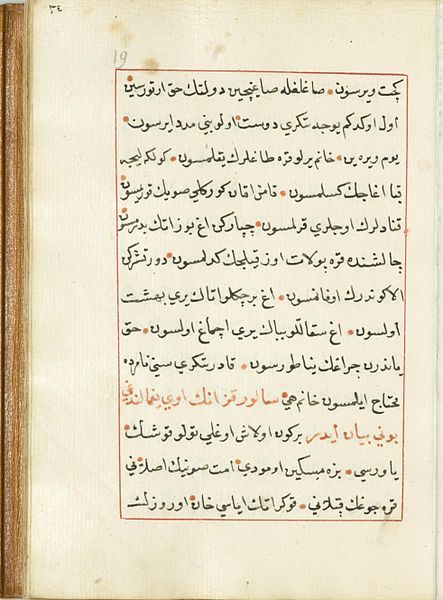 ٣٤
19
كچت ويرسون • صاغلغله صاغنجين دولتك حق ارتورسين
اول اوكدكم يوجه تكري دوست اولوبني مدد ايرسون
يوم ويره ين • خانم يرلو قره طاغلرك يقلمسون • كولكليجه
قبا اغاجك كسلمسون • قامن اقان كوركلي صويك قوريمسون
قنادلرك اوجلري قرلمسون • چپاركن اغ بوز اتك بدرمسون
چالشنده قره پولات اوز قيلجك كدلمسون • دورتشركن
الا كوندرك اوفانمسون • اغ برچكلو اناك يري بهشت
اولسون • اغ سقاللو باباك يري اچماغ اولسون • حق
ياندرن چراغك ينا طورسون • قادر تكري سني نامرده
محتاج ايلمسون خانم هي • سالور قزانك اوي يغمالندغي
بوني بيان ايدر بركون اولاش اوغلي تولو قوشك
ياورسي • بزه مسكين اومودي • امت صوينك اصلاني
قره جوغك قپلاني • قوكر اتك اياسي خان اوروزك